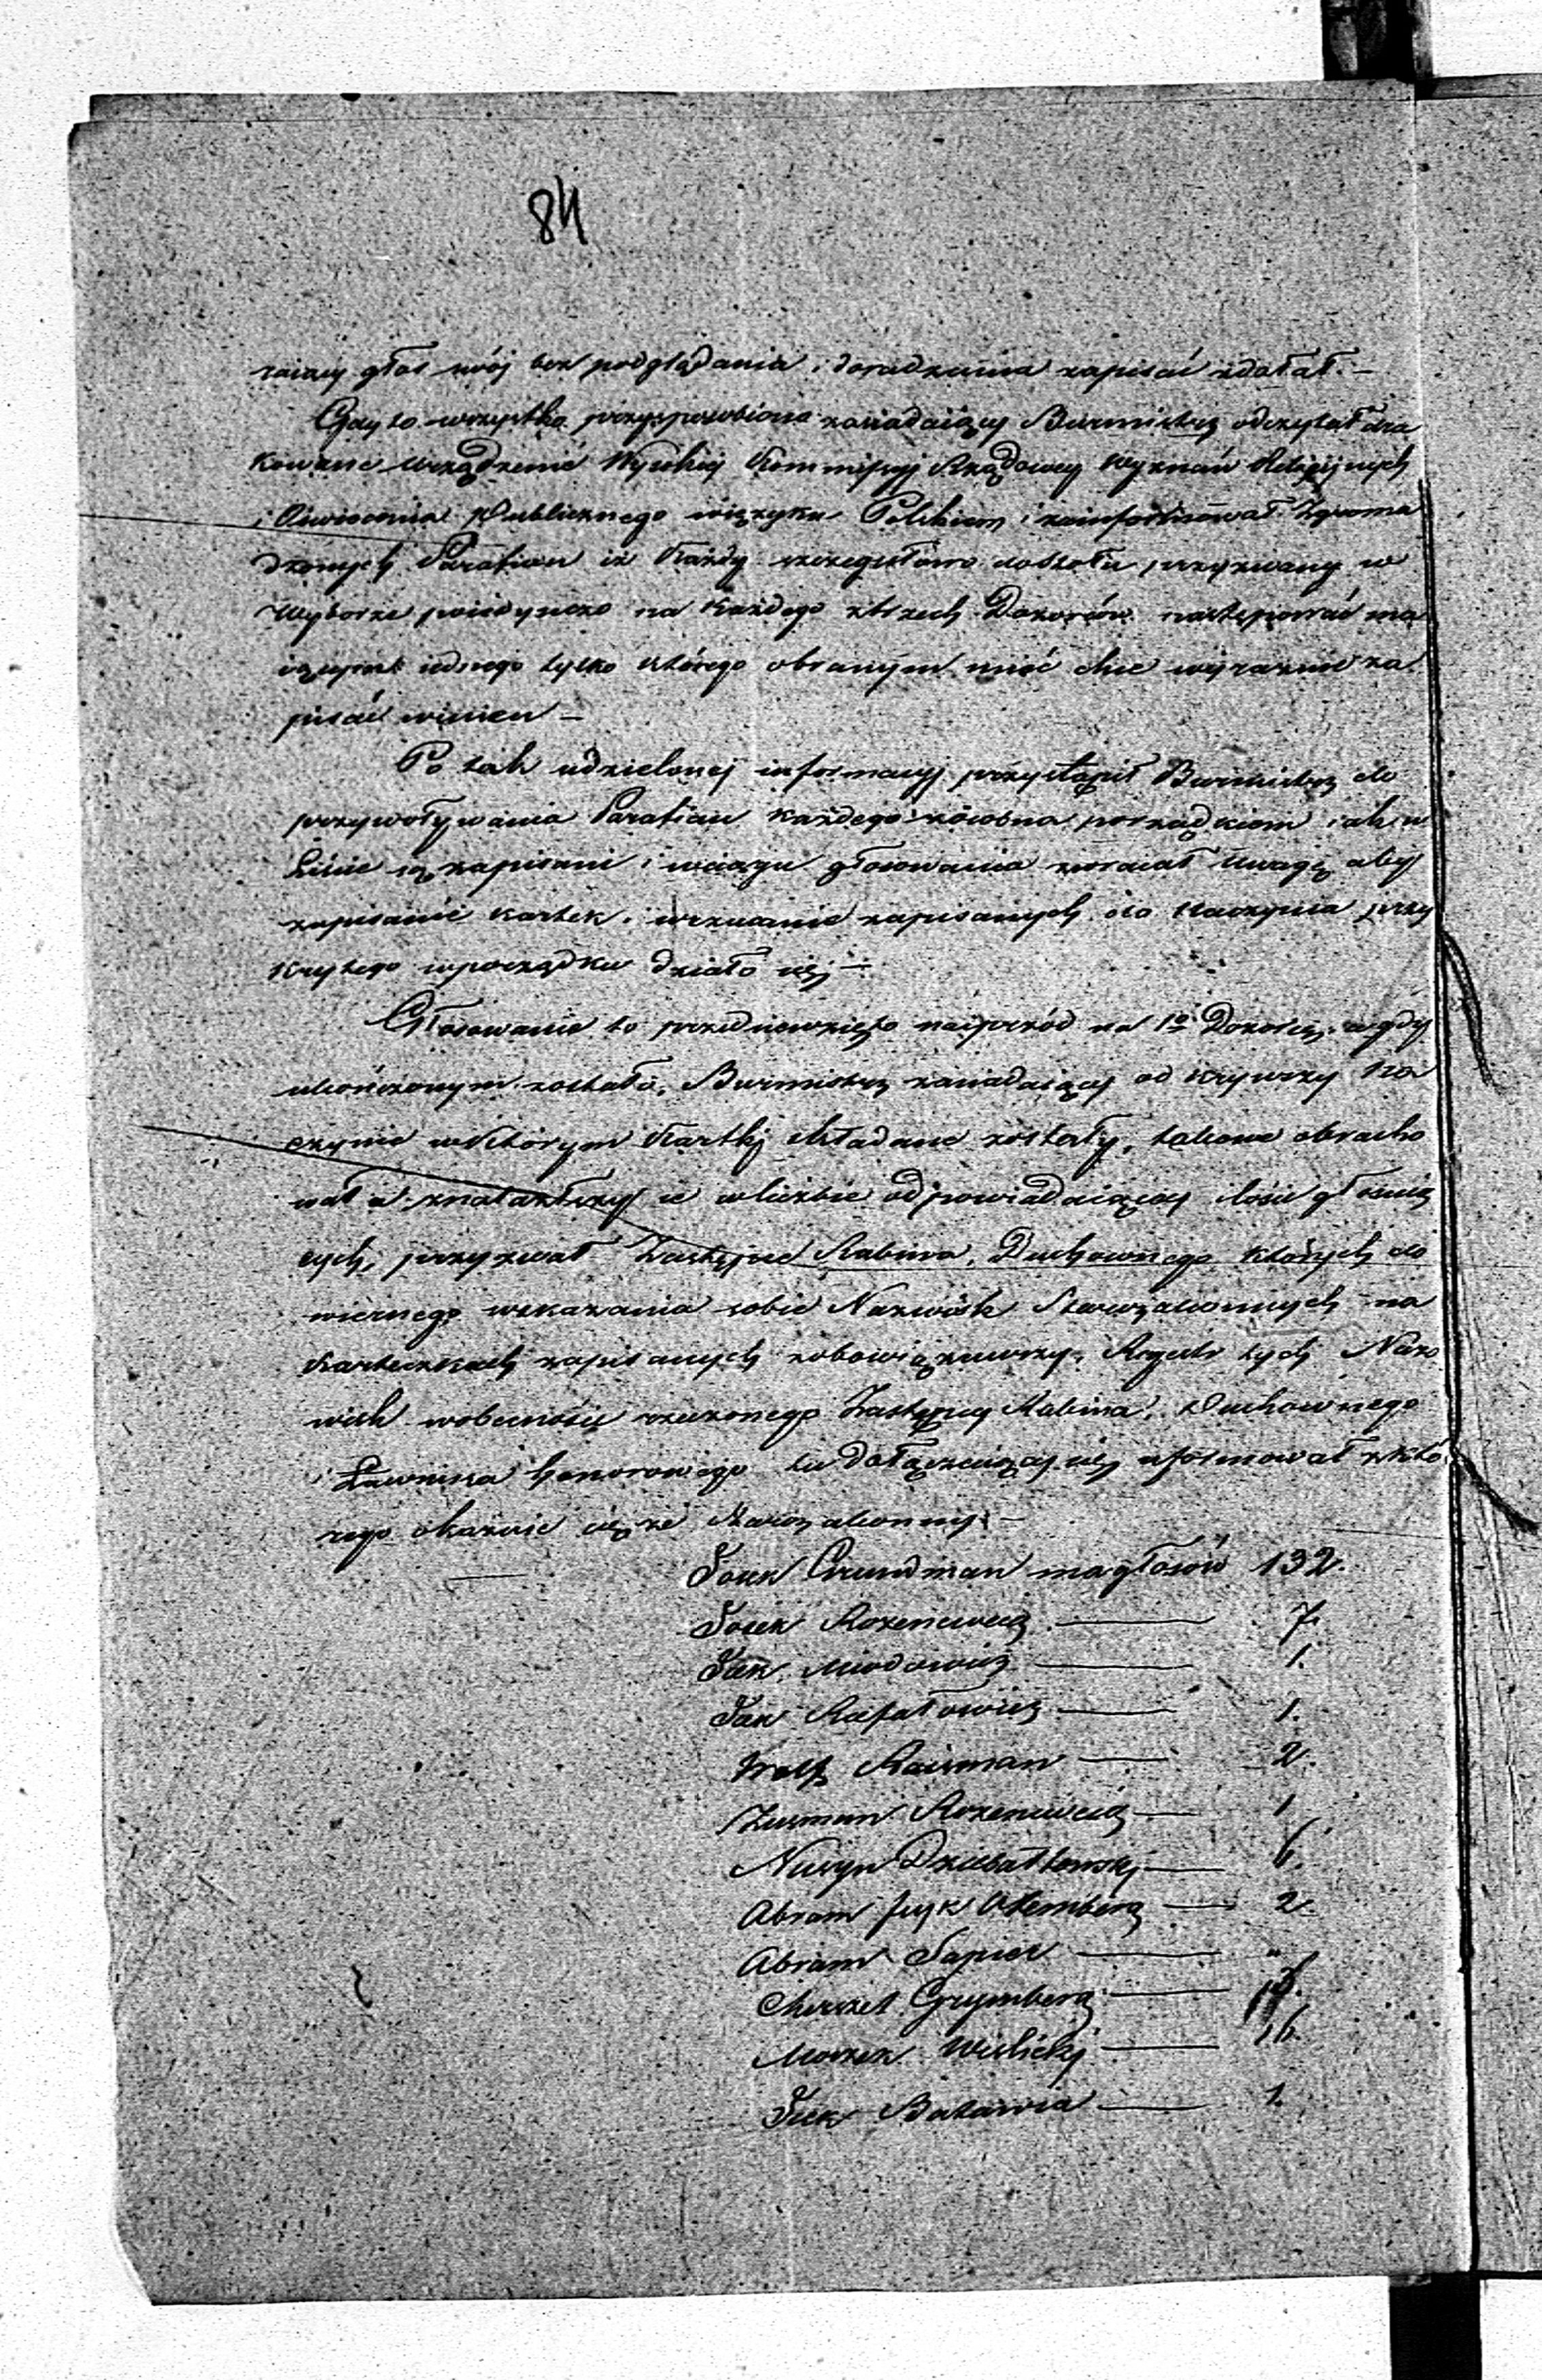 84
raiący głos swój bez podglądania i doradzania zapisać zdołał. —
Gdy to wszystko przysposobiono zasiadaiący Burmistrz odczytał dru
kowane Urządzenie Wysokiej Kommissyj Rządowey Wyznań Religijnych
i Oświecenia Publicznego w ięzyku Polskiem i zainformował Zgroma
dzonych Parafian iż Każdy szczegułowo do stołu przyzwany w
Wyborze poiedynczo na Każdego z trzech Dozorców następować ma
iednego tylko którego obranym mieć chce wyraznie za
pisać winien —
Po tak udzielonej informacyj przystąpił Burmistrz do
przywoływania Parafian Każdego z osobna porządkiem iak w
Liście są zapisani i w ciągu głosowania zwracał uwagę aby
zapisanie kartek i wrzucanie zapisanych do Naczynia przy
krytego w porządku działo się —
Głosowanie to przedniewzięto naiprzód na 1º Dozorcę, a gdy
ukończonym zostało, Burmistrz zasiadaiący odkrywszy Na
czynie w Którym Kartki składane zostały, takowe obracho
wał a znalazłszy ie w liczbie odpowiadaiącey ilości głosuią
cych, przyzwał Zastępcę Rabina, Duchownego Których do
wiernego wskazania sobie Nazwisk Starozakonnych na
Karteczkach zapisanych zobowiązawszy, Regestr tych Nazw
wisk w obecności rzeczonego Zastępcy Rabina, Duchownego
i Ławnika honorowego tu dołączaiący się uformował z któ
rego okazuie się że Starozakonny: —
Josek Grundman ma głosów 132.
Josek Rozencweig — 7.
Icek Miodowicz — 1.
Icek Rafałowicz — 1.
Wolf Raisman — 2.
Zusman Rozencweig — 1
Nusyn Działkowski — 6.
Abram Izyk Sztemberg — 2.
Abram Sapier — "
Cherszel Grynberg —
Moszek Wiślicki — 16.
Icek Batawia — 1.